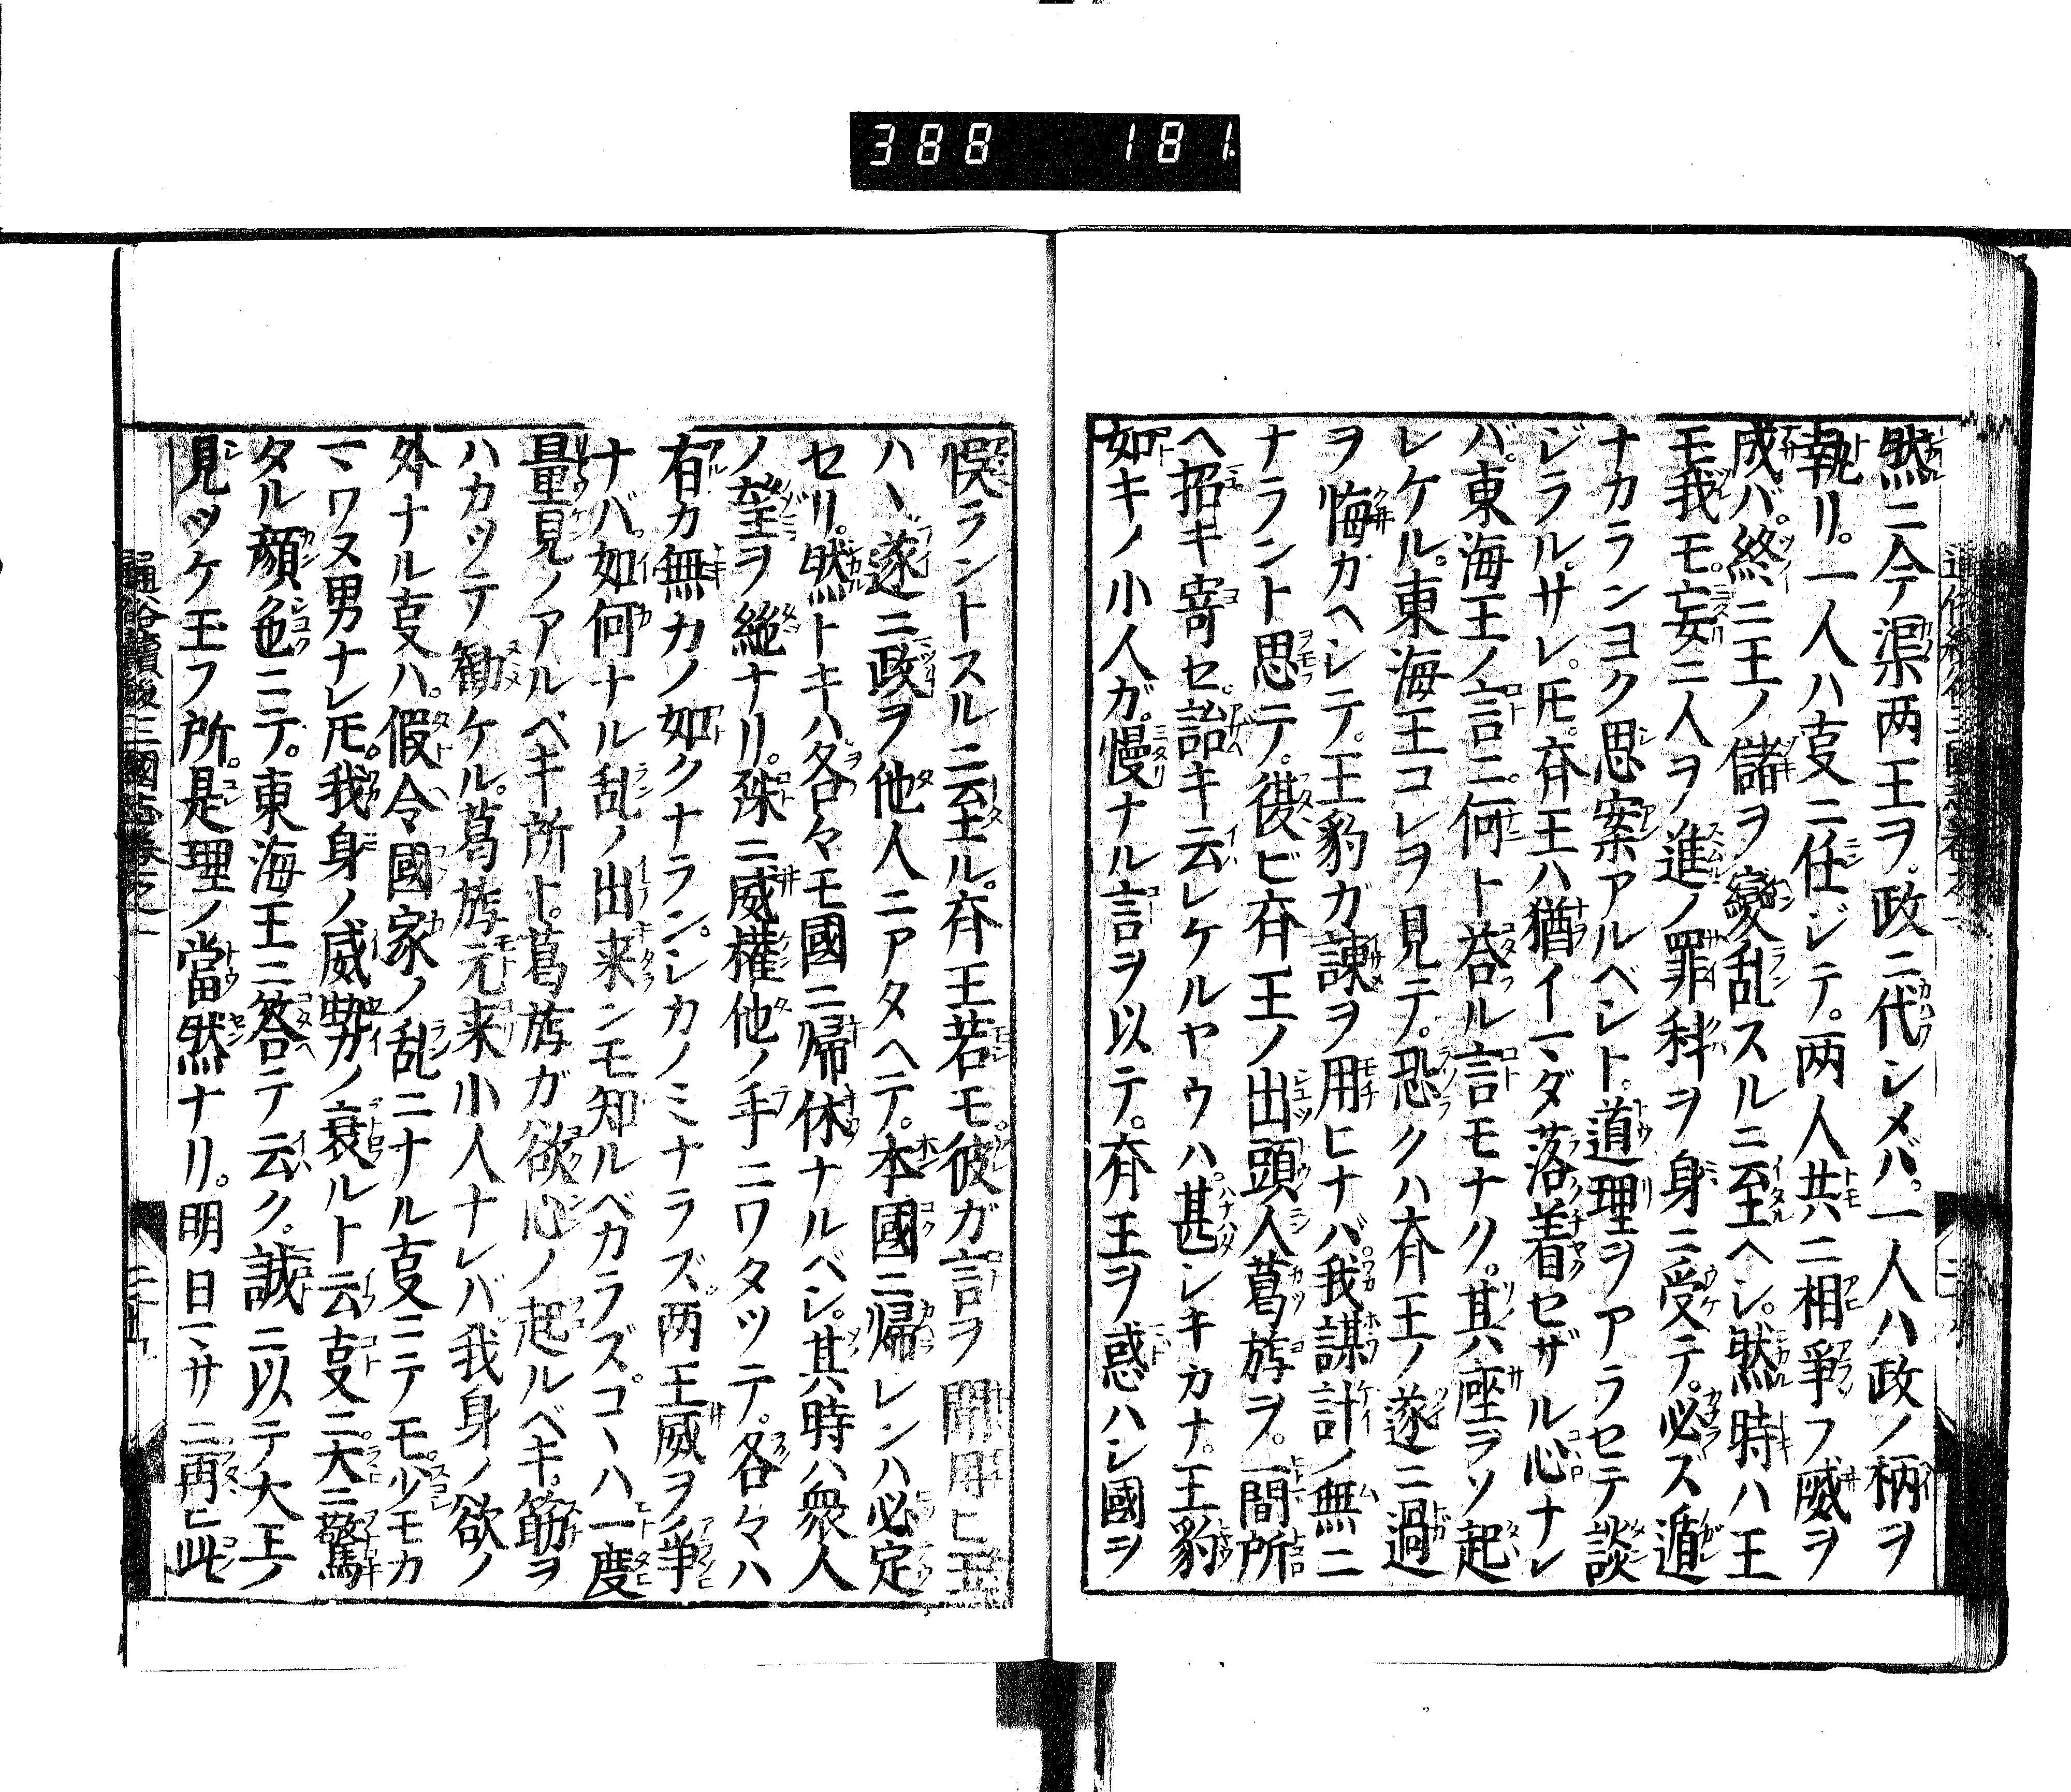 388 181
然ニ今テ渠両王ヲ。政ニ代シメバ。一人ハ政ノ柄ヲ
執リ。一人ハ叓ニ任ジテ。両人共ニ相爭フ威ヲ
成バ。終ニ王ノ儲ヲ變乱スルニ至ヘシ。然時ハ王
モ我モ。妄ニ人ヲノ進ノ罪科ヲ身ニ受テ。必ズ遁
ナカランヨク思案アルベシト。道理ヲアラセテ談
ジラル。サレ𪜈。斉王ハ猶イマダ落着セザル心ナレ
バ。東海王ノ言ニ。何ト荅ル言モナク。其座ヲソ起
レケル。東海王コレヲ見テ。恐クハ斉王ノ遂ニ過
ヲ悔カヘシテ。王豹ガ諫ヲ用ヒナバ。我謀計ノ無ニ
ナラント思テ。復ビ斉王ノ出頭人葛旟ヲ。一間所
ヘ招キ寄セ。詒キ云レケルヤウハ。甚シキカナ。王豹
如キノ小人ガ。慢ナル言ヲ以テ。斉王ヲ惑ハシ國ヲ
悞ラントスルニ至ル。斉王若モ。彼ガ言ヲ聞用ヒ玉
ハヾ。遂ニ政ヲ他人ニアタヘテ。本國ニ帰レンハ必定
セリ。然トキハ各々モ國ニ帰休ナルベシ。其時ハ衆人
ノ望ヲ絶ナリ。殊ニ威權他ノ手ニワタツテ。各々ハ
有カ無カノ如クナラン。シカノミナラズ。両王威ヲ爭
ナバ。如何ナル乱ノ出来ンモ知ルベカラズ。コヽハ一度
量見ノアルベキ所ト。葛旟ガ欲心ノ起ルベキ。筋ヲ
ハカツテ勧ケル。葛旟元来小人ナレバ。我身ノ欲ノ
外ナル叓ハ。假令國家ノ乱ニナル叓ニテモ。少モカ
マワヌ男ナレ𪜈。我身ノ威勢ノ衰ルト云叓ニ。大ニ驚
タル顔色ニテ。東海王ニ答テ云ク。誠ニ以テ大王ノ
見ツケ玉フ所。是理ノ當然ナリ。明日マサニ再ヒ此
通俗續後三國志卷之一